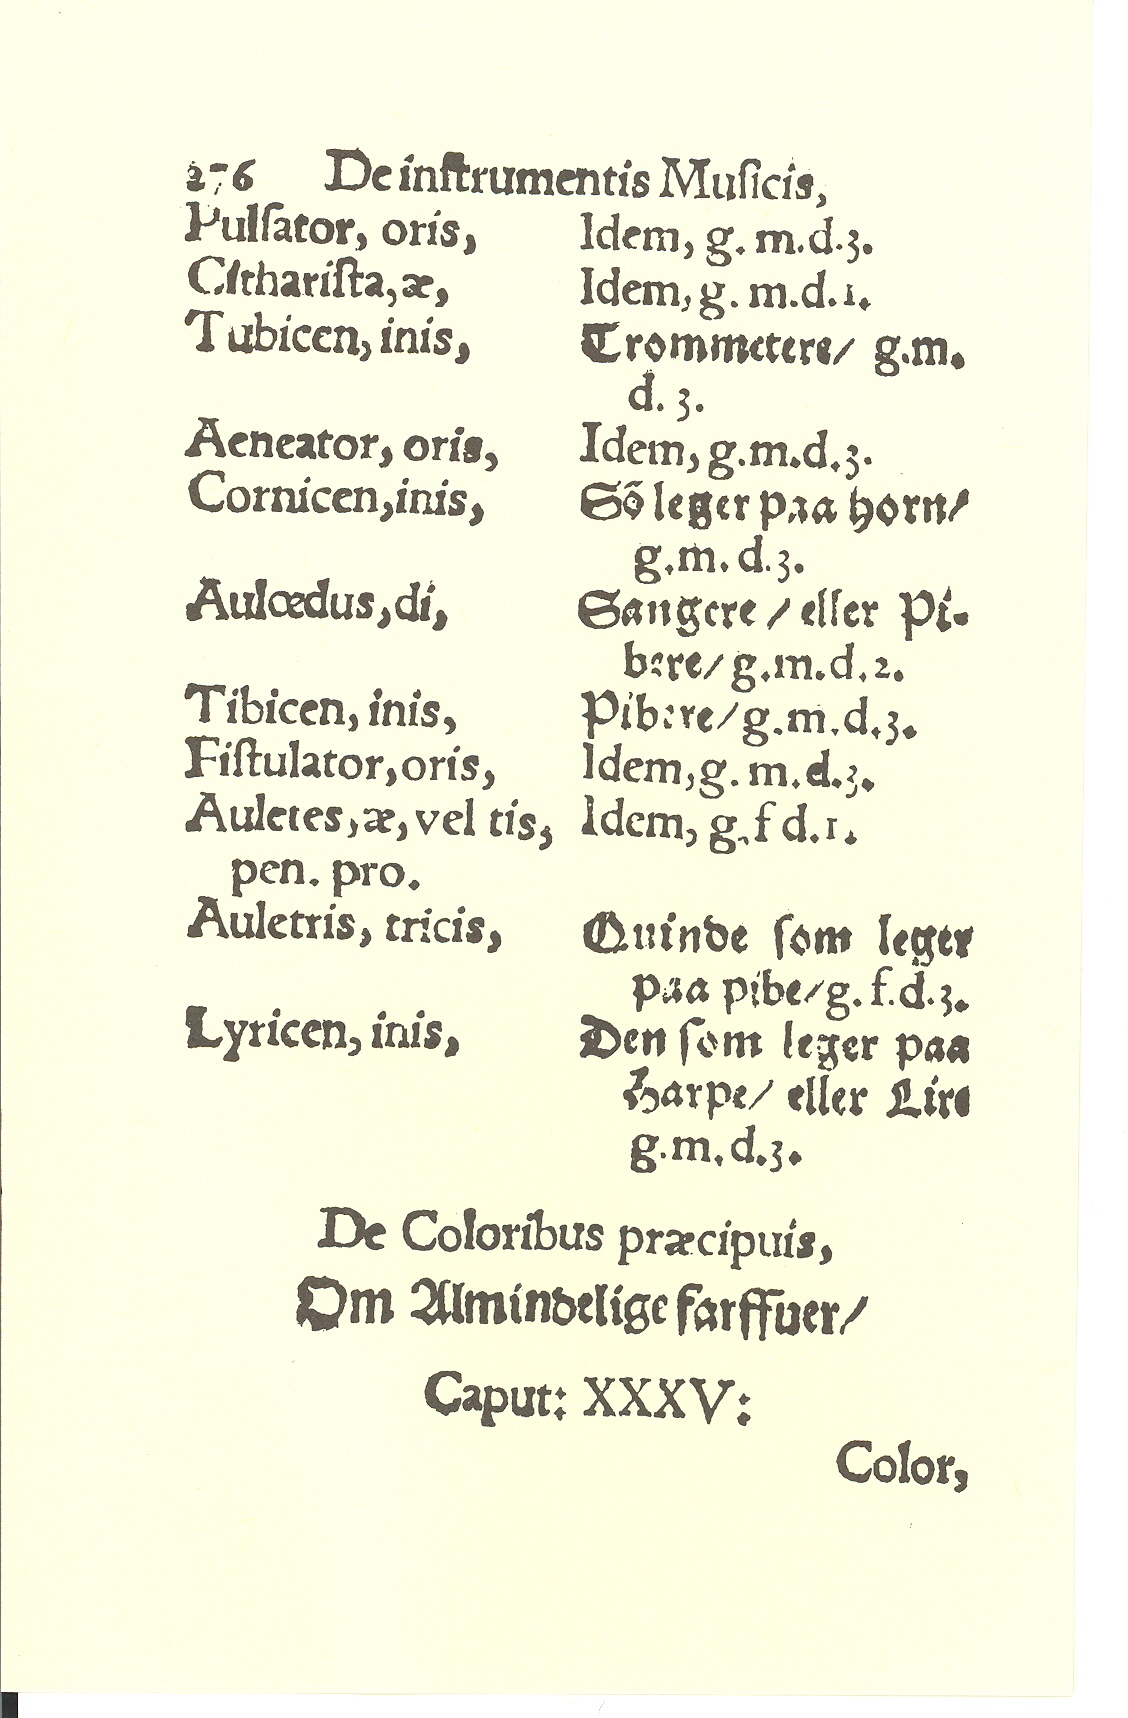 276 De inſtrumentis Muſicis,
Pulſator, oris, Idem, g. m.d.3.
Cithariſta,æ, Idem, g. m.d.1.
Tubicen, inis, Trommetere/ g.m.
d. 3.
Aeneator, oris, Idem, g.m.d.3.
Cornicen,inis, Sõ leger paa horn/
g.m. d.3.
Aulœdus,di, Sangere / eller Pi-
bere/ g.m.d.2.
Tibicen, inis, Pibere/ g.m.d.3.
Fiſtulator,oris, Idem,g. m.d.3.
Auletes,æ, vel tis, Idem, g.f d.1.
pen. pro.
Auletris, tricis, Quinde ſom leger
paa pibe/g. f.d.3.
Lyricen, inis, Den ſom leger paa
Harpe/ eller Lire
g.m.d.3.
De Coloribus præcipuis,
Om Almindelige farffuer/
Caput: XXXV:
Color,